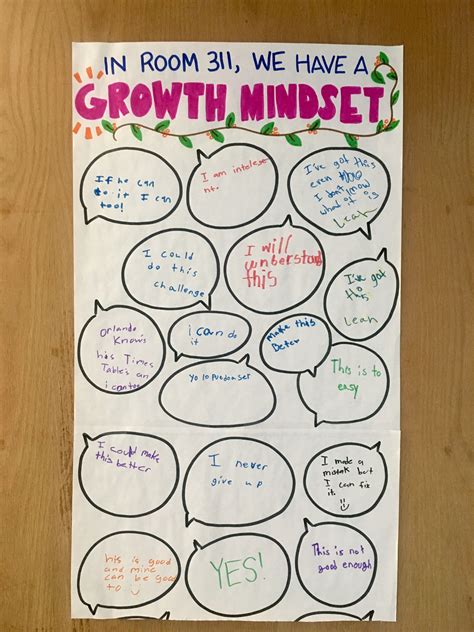 IN ROOM 311, WE HAVE A
GROWTH MINDSET
If he can
do it I can
too!
I am intelege
nt.
I've got this
even
I don't know
what it is
Leah
I could
do this
challenge
I will
understand
this
I've got
this
Leah
Orlando
Knows
his Times
Tables an
i can too
i can do
it
make this
Beter
Yo lo puedo hser
This is to
easy
I could make
this better
I never
give up
I made a
mistak but
I can fix
it.
his is good
and mine
can be good
to
YES!
This is not
good enough